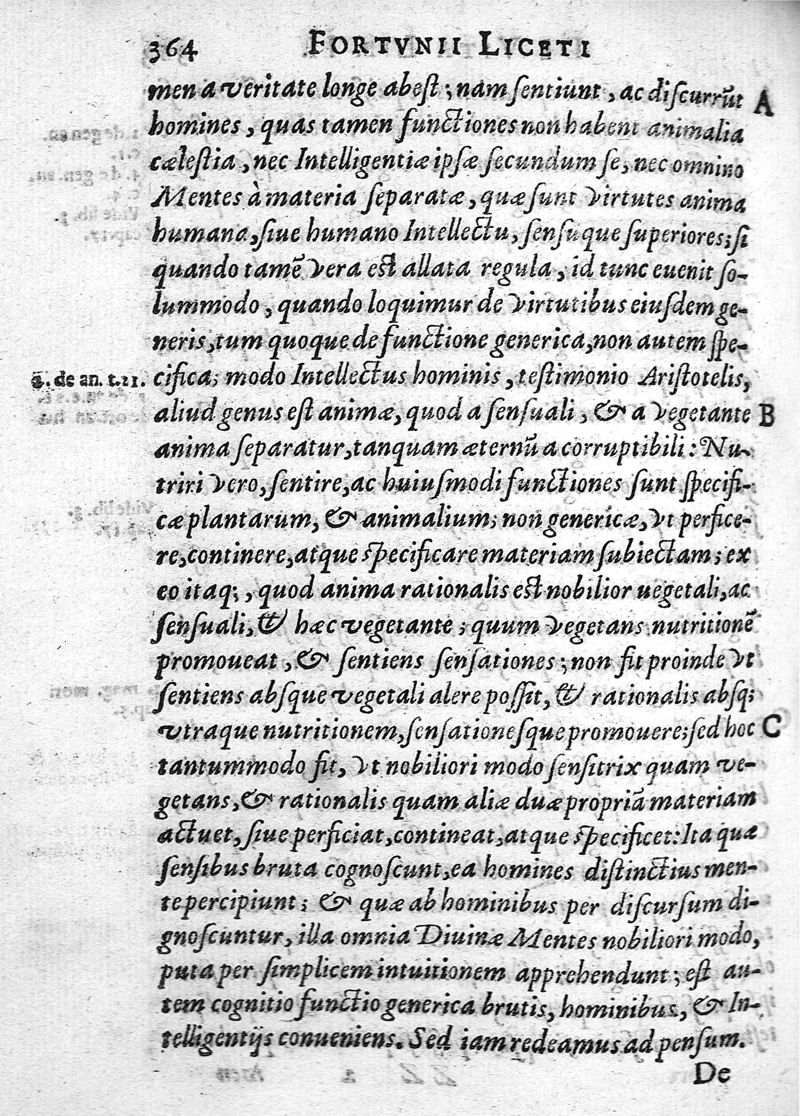 364 FORTVNII LICETI
men a veritate longe abest; nam sentiunt, ac discurrũt A
homines, quas tamen functiones non habent animalia
cælestia, nec Intelligentiæ ipsæ secundum se, nec omnino
Mentes à materia separatæ, quæ sunt virtutes anima
humana, siue humano Intellectu, sensuque superiores; si
quando tamẽ vera est allata regula, id tunc euenit so-
lummodo, quando loquimur de virtutibus eiusdem ge-
neris, tum quoque de functione generica, non autem spe-
2. de an. t. 21. cifica; modo Intellectus hominis, testimonio Aristotelis,
aliud genus est animæ, quod a sensuali, & a vegetante B
anima separatur, tanquam æternũ a corruptibili: Nu-
triri vero, sentire, ac huiusmodi functiones sunt specifi-
cæ plantarum, & animalium; non genericæ, vt perfice-
re, continere, atque specificare materiam subiectam; ex
eo itaq;, quod anima rationalis est nobilior uegetali, ac
sensuali, & hæc vegetante; quum vegetans nutritionẽ
promoueat, & sentiens sensationes; non fit proinde vt
sentiens absque vegetali alere possit, & rationalis absq;
vtraque nutritionem, sensationesque promouere; sed hoc C
tantummodo fit, vt nobiliori modo sensitrix quam ve-
getans, & rationalis quam aliæ duæ propriã materiam
actuet, siue perficiat, contineat, atque specificet: Ita quæ
sensibus bruta cognoscunt, ea homines distinctius men-
te percipiunt; & quæ ab hominibus per discursum di-
gnoscuntur, illa omnia Diuinæ Mentes nobiliori modo,
puta per simplicem intuitionem apprehendunt; est au-
tem cognitio functio generica brutis, hominibus, & In-
telligentijs conueniens. Sed iam redeamus ad pensum.
De